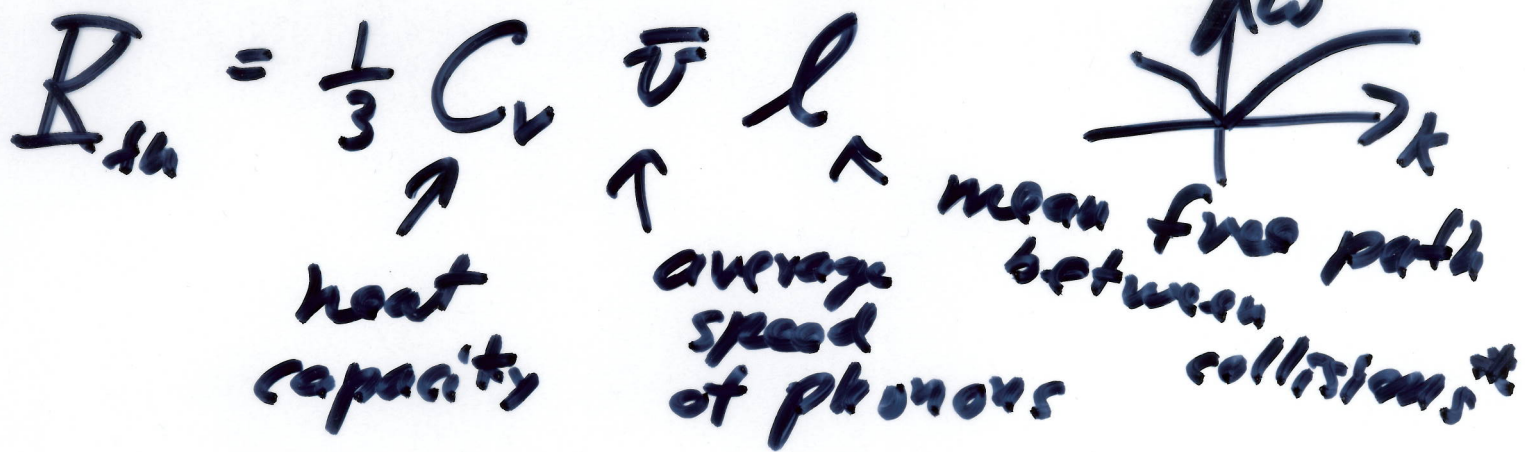 K_th = 1/3 C_v v̄ ℓ
ω
k
heat capacity
average speed of phonons
mean free path between collisions*